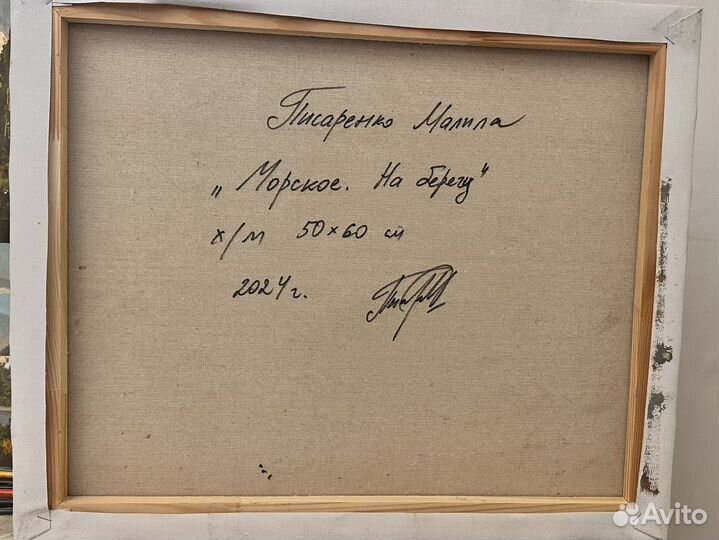 Писаренко Малила
„Морское. На берегу"
х/м 50×60 см
2024 г.
Avito